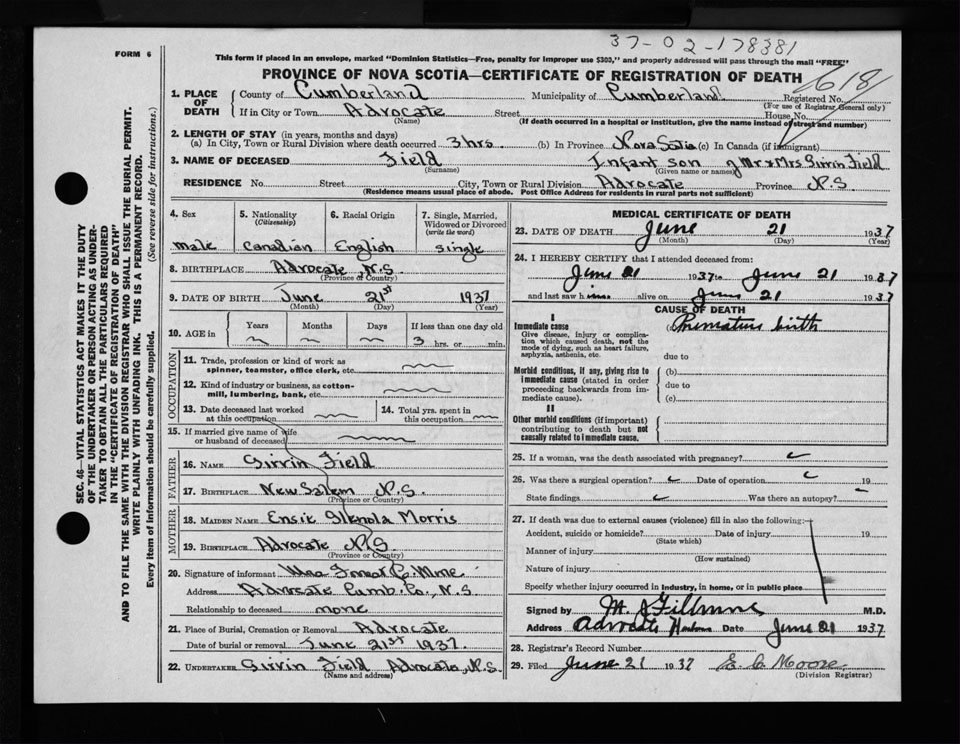 37-02-178381
FORM 6
This form if placed in an envelope, marked "Dominion Statistics—Free, penalty for improper use $300," and properly addressed will pass through the mail "FREE"
PROVINCE OF NOVA SCOTIA—CERTIFICATE OF REGISTRATION OF DEATH
618
1. PLACE OF DEATH
County of Cumberland Municipality of Cumberland Registered No.
(For use of Registrar General only)
If in City or Town Advocate Street House No.
(Name) (If death occurred in a hospital or institution, give the name instead of street and number)
2. LENGTH OF STAY (in years, months and days)
(a) In City, Town or Rural Division where death occurred 3 hrs (b) In Province Nova Scotia (c) In Canada (if immigrant)
3. NAME OF DECEASED Field Infant son of Mr & Mrs Girvin Field
(Surname) (Given name or names)
RESIDENCE No. Street City, Town or Rural Division Advocate Province N.S
(Residence means usual place of abode. Post Office Address for residents in rural parts not sufficient)
SEC. 46—VITAL STATISTICS ACT MAKES IT THE DUTY
OF THE UNDERTAKER OR PERSON ACTING AS UNDER-
TAKER TO OBTAIN ALL THE PARTICULARS REQUIRED
IN THE "CERTIFICATE OF REGISTRATION OF DEATH"
AND TO FILE THE SAME WITH THE DIVISION REGISTRAR WHO SHALL ISSUE THE BURIAL PERMIT.
WRITE PLAINLY WITH UNFADING INK. THIS IS A PERMANENT RECORD.
Every item of information should be carefully supplied. (See reverse side for instructions.)
4. Sex 5. Nationality 6. Racial Origin 7. Single, Married,
(Citizenship) Widowed or Divorced
(write the word)
male Canadian English single
8. BIRTHPLACE Advocate, N.S
(Province or Country)
9. DATE OF BIRTH June 21st 1937
(Month) (Day) (Year)
10. AGE in Years Months Days If less than one day old
3 hrs. or min.
OCCUPATION
11. Trade, profession or kind of work as
spinner, teamster, office clerk, etc.
12. Kind of industry or business, as cotton-
mill, lumbering, bank, etc.
13. Date deceased last worked 14. Total yrs. spent in
at this occupation this occupation
15. If married give name of wife
or husband of deceased
FATHER
16. NAME Girvin Field
17. BIRTHPLACE New Salem N.S.
(Province or Country)
MOTHER
18. MAIDEN NAME Glenola Morris
19. BIRTHPLACE Advocate N.S.
(Province or Country)
20. Signature of informant
Address Advocate Cumb. Co., N.S
Relationship to deceased none
21. Place of Burial, Cremation or Removal Advocate
Date of burial or removal June 21st 1937.
22. UNDERTAKER Girvin Field Advocate, N.S.
(Name and address)
MEDICAL CERTIFICATE OF DEATH
23. DATE OF DEATH June 21 1937
(Month) (Day) (Year)
24. I HEREBY CERTIFY that I attended deceased from:
June 21 1937 to June 21 1937
and last saw him alive on June 21 1937
CAUSE OF DEATH
I
Immediate cause (a) Premature birth
Give disease, injury or complica-
tion which caused death, not the
mode of dying, such as heart failure,
asphyxia, asthenia, etc. due to
Morbid conditions, if any, giving rise to (b)
immediate cause (stated in order
proceeding backwards from im- due to
mediate cause). (c)
II
Other morbid conditions (if important)
contributing to death but not
causally related to immediate cause.
25. If a woman, was the death associated with pregnancy?
26. Was there a surgical operation? Date of operation 19
State findings Was there an autopsy?
27. If death was due to external causes (violence) fill in also the following:
Accident, suicide or homicide? Date of injury 19
(State which)
Manner of injury
(How sustained)
Nature of injury
Specify whether injury occurred in industry, in home, or in public place
Signed by M. M.D.
Address Advocate Date June 21 1937
28. Registrar's Record Number
29. Filed June 21 1937 E. C. Moore
(Division Registrar)